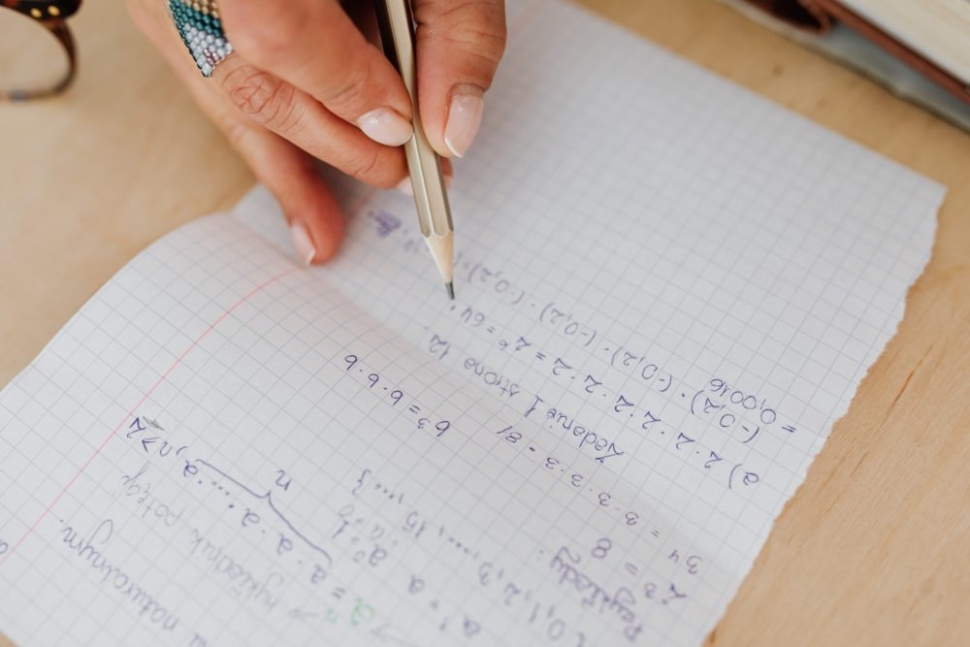 naturalnym.
aⁿ → wykładnik potęgi
= a · a · a · ... · a, n≥2
n
a¹ = a a⁰ = 1
0, 1, 2, 3, ..., 15, ...}
Przykłady:
2³ = 8
3⁴ = 3 · 3 · 3 · 3 = 81
b³ = b · b · b
Zadanie 1 strona 12.
a) 2 · 2 · 2 · 2 · 2 · 2 = 2⁶ = 64
(-0,2) · (-0,2) · (-0,2) · (-0,2)
= 0,0016